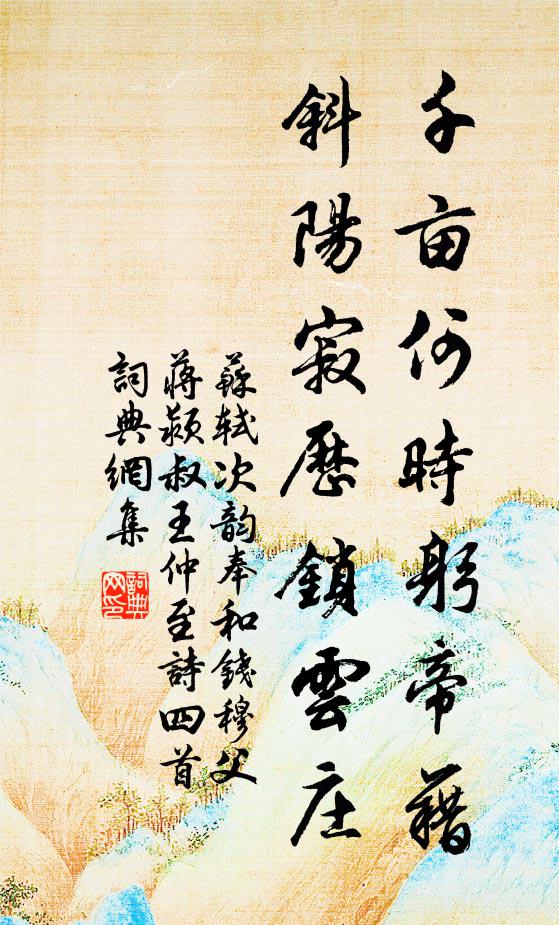 千亩何時躬帝藉
斜陽寂歷鎖雲庄
蘇軾次韵奉和錢穆父
蔣穎叔王仲至詩四首
詞典網集
詞典網印